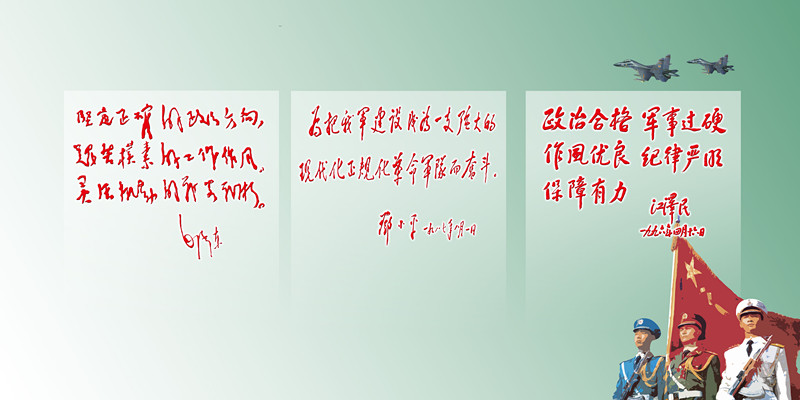 坚定正确的政治方向，
艰苦朴素的工作作风，
灵活机动的战略战术。
毛泽东
为把我军建设成为一支强大的
现代化正规化革命军队而奋斗.
邓小平 一九八〇年八月一日
政治合格 军事过硬
作风优良 纪律严明
保障有力
江泽民
一九九六年四月六日